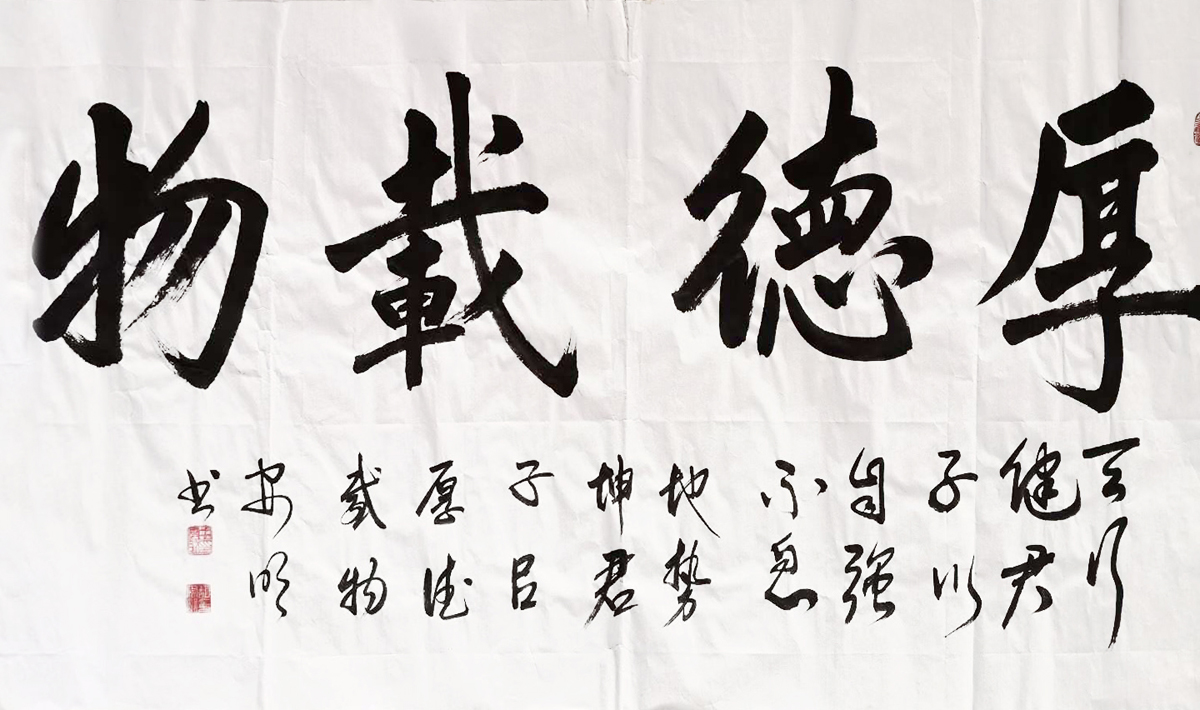 厚德載物
天行
健君
子以
自强
不息
地势
坤君
子㠯
厚德
载物
安明
书